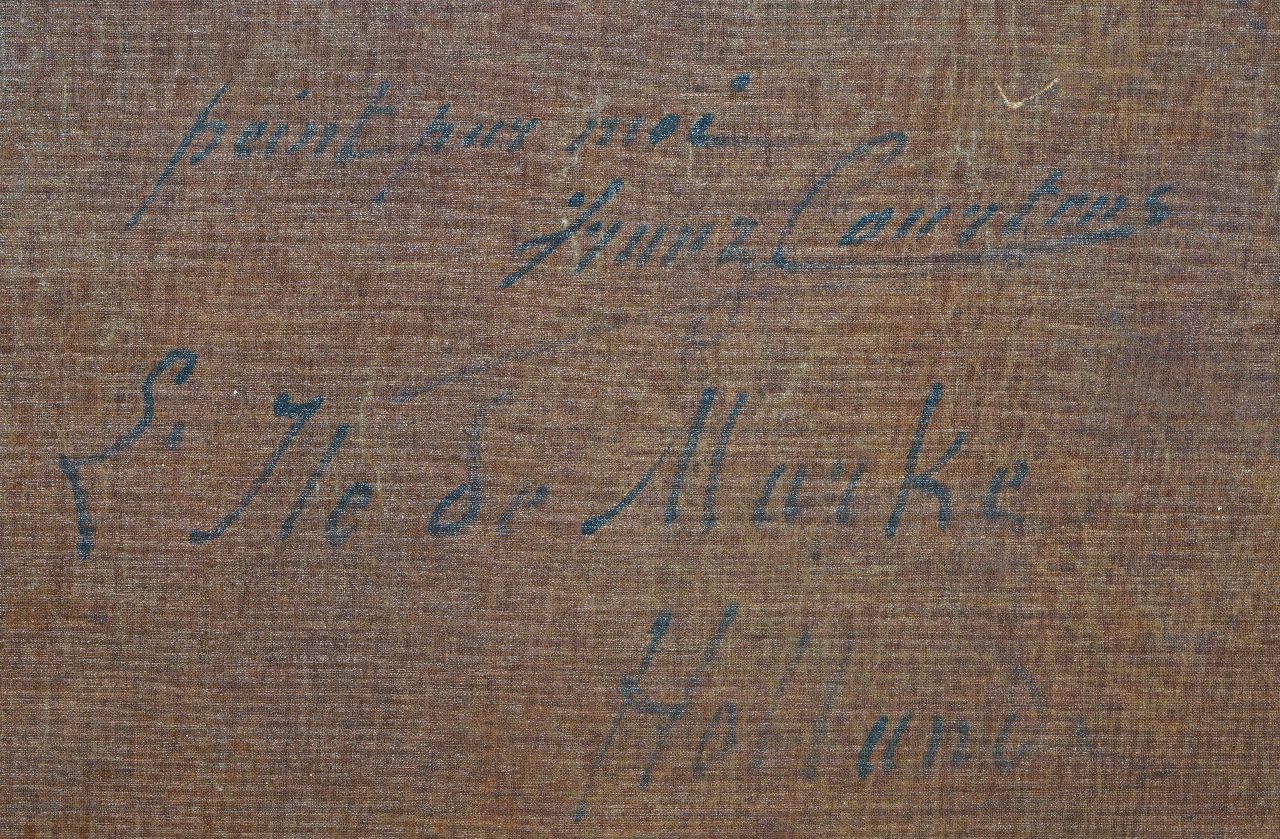 peint par moi
Franz Courtens
L'Ile de Marke
Holland